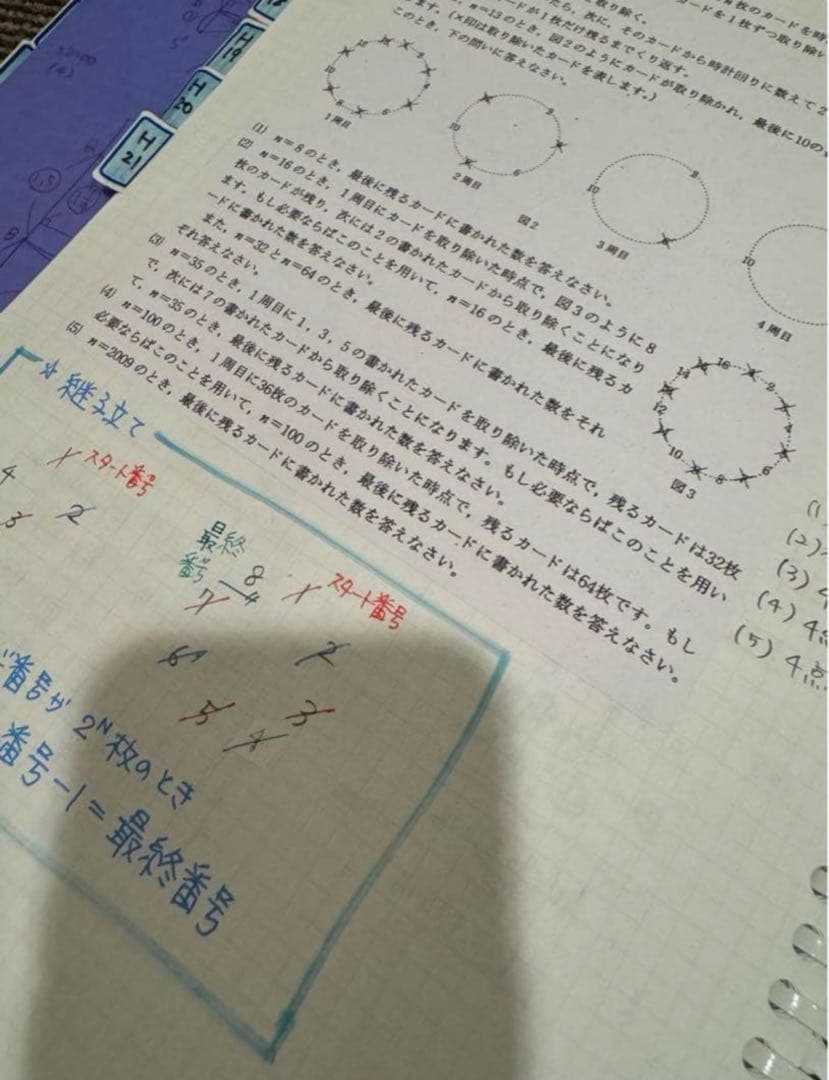 枚のカードを時
カードを1枚ずつ取り除い
たら、次に、そのカードから時計回りに数えて2
カードが1枚だけ残るまでくり返す。
n=13のとき、図2のようにカードが取り除かれ、最後に10の
ます。(×印は取り除いたカードを表します。)
このとき、下の問いに答えなさい。
1周目
10
6
2周目
図2
10
3周目
10
4周目
(1) n=8のとき、最後に残るカードに書かれた数を答えなさい。
(2) n=16のとき、1周目にカードを取り除いた時点で、図3のように8
枚のカードが残り、次には2の書かれたカードから取り除くことになり
ます。もし必要ならばこのことを用いて、n=16のとき、最後に残るカ
ードに書かれた数を答えなさい。
また、n=32とn=64のとき、最後に残るカードに書かれた数をそれ
ぞれ答えなさい。
(3) n=35のとき、1周目に1、3、5の書かれたカードを取り除いた時点で、残るカードは32枚
で、次には7の書かれたカードから取り除くことになります。もし必要ならばこのことを用い
て、n=35のとき、最後に残るカードに書かれた数を答えなさい。
(4) n=100のとき、1周目に36枚のカードを取り除いた時点で、残るカードは64枚です。もし
必要ならばこのことを用いて、n=100のとき、最後に残るカードに書かれた数を答えなさい。
(5) n=2009のとき、最後に残るカードに書かれた数を答えなさい。
16
14
12
10
8
6
4
図3
(1
(2)
(3) 4
(4) 4点
(5) 4点
H
19
H
20
H
21
☆継子立て
1 スタート番号
4
3 2
最終
番号 8
1 スタート番号
7
2
6
5 3
4
番号が 2ᴺ枚のとき
番号-1=最終番号